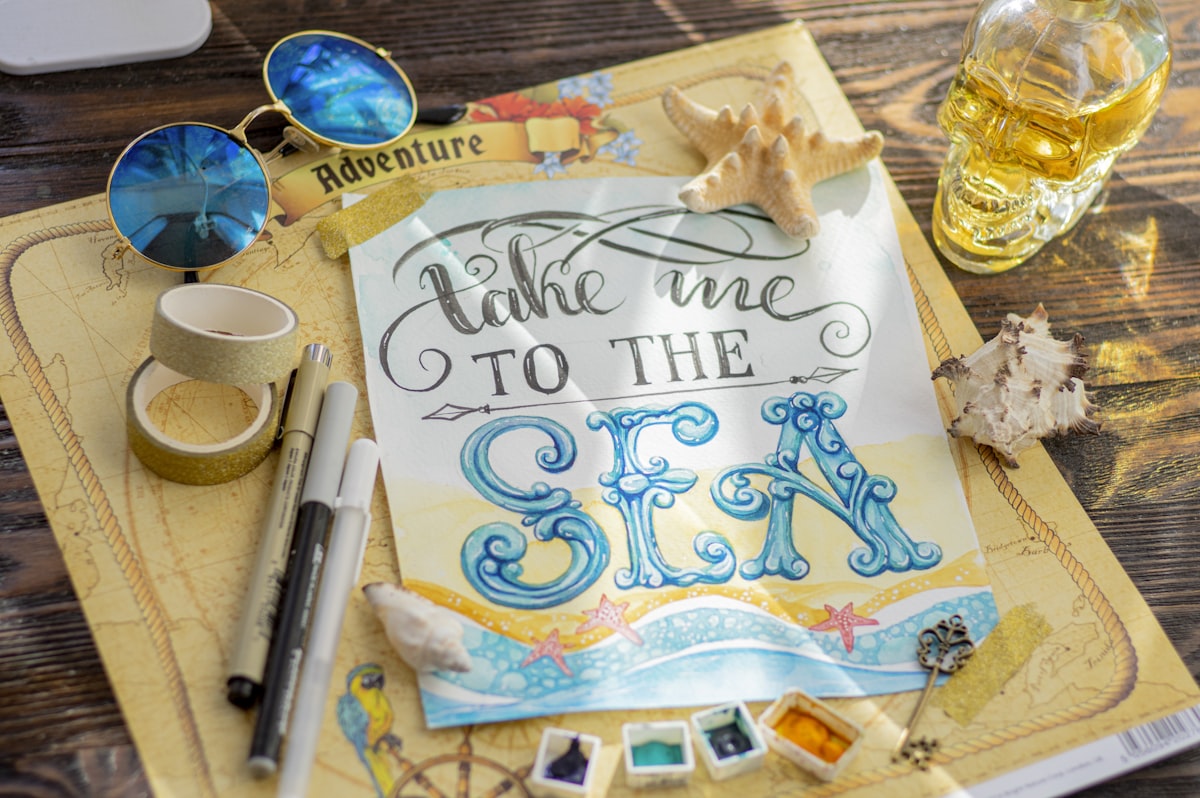 Adventure
take me
TO THE
SEA